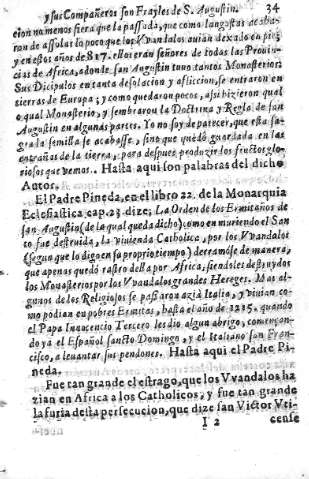 y sus Compañeros son Frayles de S. Augustin. 34
cion no menos fiera que la passada, que como langostas acaba-
ron de assolar lo poco que los Vvandalos auian dexado en pie;
y en estos años de 817. ellos eran señores de todas las Prouin-
cias de Africa, adonde san Augustin tuuo tantos Monasterios:
Sus Dicipulos en tanta desolacion y afliccion, se entraron en
tierras de Europa; y como quedaron pocos, assi hizieron qual
o qual Monasterio, y sembraron la Doctrina y Regla de san
Augustin en algunas partes. Yo no soy de parecer, que esta sa-
grada semilla se acabasse, sino que quedó guardada en las
entrañas de la tierra, para despues produzir los fructos glo-
riosos que vemos. Hasta aqui son palabras del dicho
Autor.
El Padre Pineda, en el libro 22. de la Monarquia
Eclesiastica cap. 23. dize; La Orden de los Ermitaños de
san Augustin (de la qual queda dicho) como en muriendo el San
to fue destruida, la viuienda Catholica, por los Vvandalos
(segun que lo digo en su proprio tiempo) derramòse de manera,
que apenas quedó rastro della por Africa, siendoles destruydos
los Monasterios por los Vvandalos grandes Hereges. Mas al-
gunos de los Religiosos se passaron azia Italia, y viuian co-
mo podian en pobres Ermitas, hasta el año de 1215. quando
el Papa Innocencio Tercero les dio algun abrigo, comenzan-
do ya el Español sancto Domingo, y el Italiano san Fran-
cisco, a leuantar sus pendones. Hasta aqui el Padre Pi-
neda.
Fue tan grande el estrago, que los Vvandalos ha
zian en Africa a los Catholicos, y fue tan grande
la furia desta persecucion, que dize san Victor Vti-
I 2 cense